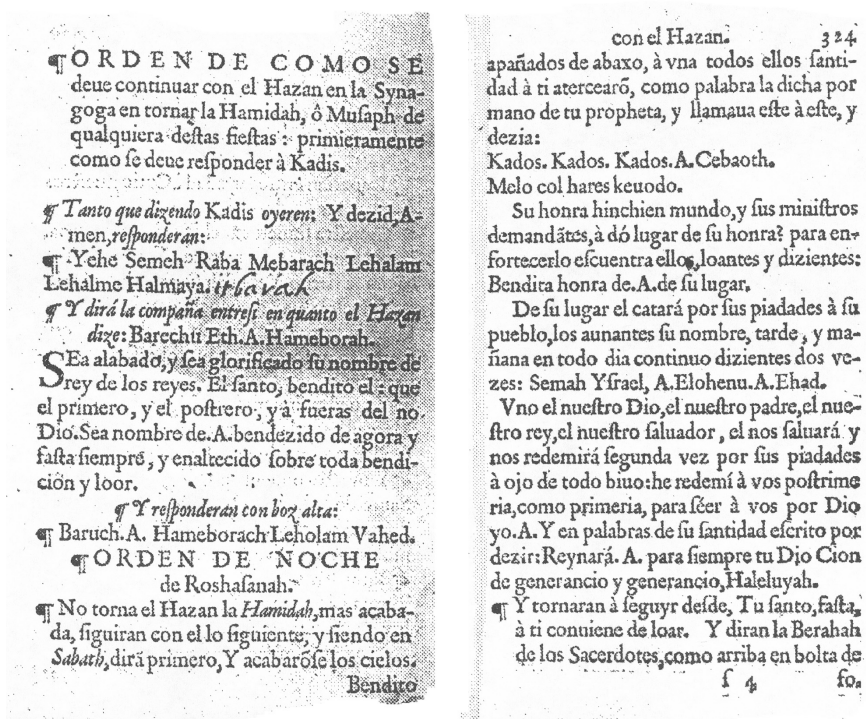 ¶ORDEN DE COMO SE
deue continuar con el Hazan en la Syna-
goga en tornar la Hamidah, ô Musaph de
qualquiera destas fiestas : primieramente
como se deue responder à Kadis.
¶ Tanto que dizendo Kadis oyeren: Y dezid, A-
men, responderan:
¶ Yehe Semeh Raba Mebarach Lehalam
Lehalme Halmaya. itbarah
¶ Y dirá la compaña entresi en quanto el Hazan
dize: Barechu Eth. A. Hameborah.
SEa alabado, y sea glorificado su nombre de
rey de los reyes. El santo, bendito el : que
el primero, y el postrero, y à fueras del no
Dio. Sea nombre de. A. bendezido de agora y
fasta siempre, y enaltecido sobre toda bendi-
ción y loor.
¶ Y responderan con boz alta:
¶ Baruch. A. Hameborach Leholam Vahed.
¶ORDEN DE NOCHE
de Roshasanah.
¶ No torna el Hazan la Hamidah, mas acaba-
da, siguiran con el lo siguiente, y siendo en
Sabath, dirá primero, Y acabarõse los cielos.
Bendito
con el Hazan. 324
apañados de abaxo, à vna todos ellos santi-
dad à ti atercearõ, como palabra la dicha por
mano de tu propheta, y llamaua este à este, y
dezia:
Kados. Kados. Kados. A. Cebaoth.
Melo col hares keuodo.
Su honra hinchien mundo, y sus ministros
demandãtes, à dó lugar de su honra? para en-
fortecerlo escuentra ellos, loantes y dizientes:
Bendita honra de. A. de su lugar.
De su lugar el catará por sus piadades à su
pueblo, los aunantes su nombre, tarde, y ma-
ñana en todo dia continuo dizientes dos ve-
zes: Semah Ysrael, A. Elohenu. A. Ehad.
Vno el nuestro Dio, el nuestro padre, el nue-
stro rey, el nuestro saluador, el nos saluará y
nos redemirá segunda vez por sus piadades
à ojo de todo biuo: he redemí à vos postrime
ria, como primeria, para séer à vos por Dio
yo. A. Y en palabras de su santidad escrito por
dezir: Reynará. A. para siempre tu Dio Cion
de generancio y generancio, Haleluyah.
¶ Y tornaran à seguyr desde, Tu santo, fasta,
à ti conuiene de loar. Y diran la Berahah
de los Sacerdotes, como arriba en bolta de
s 4 fo.